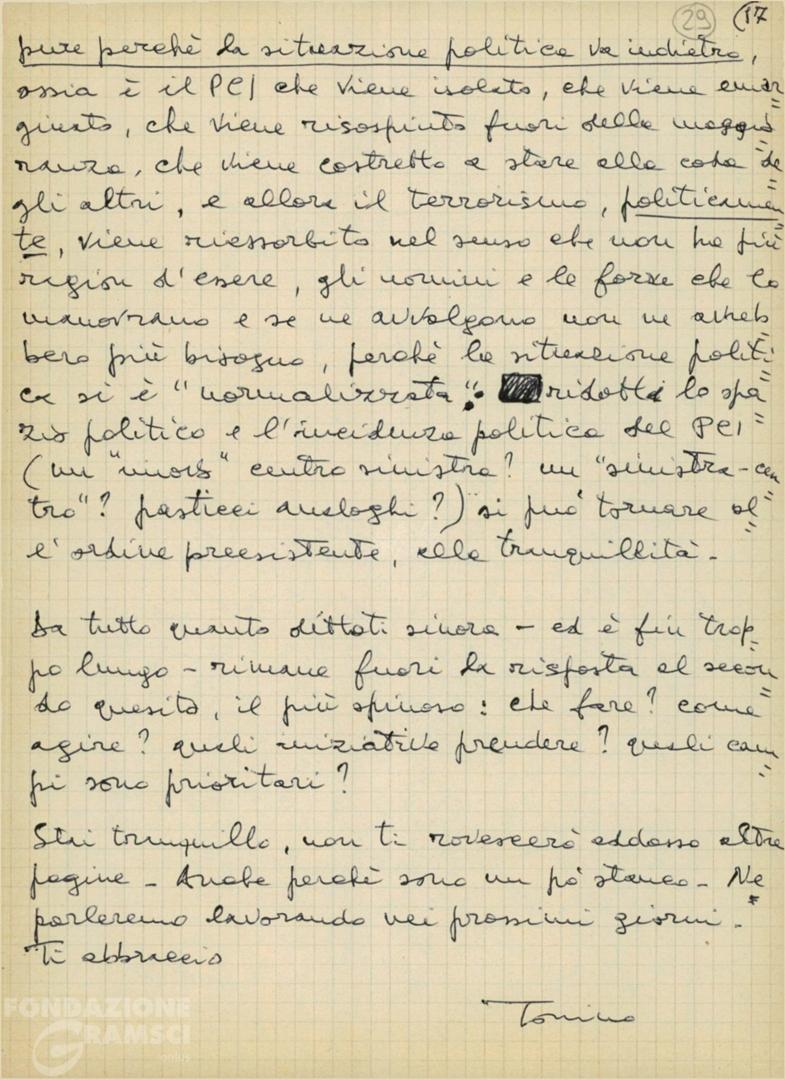 29 17
pure perchè la situazione politica va indietro,
ossia è il PCI che viene isolato, che viene emar=
ginato, che viene risospinto fuori della maggio=
ranza, che viene costretto a stare alla coda de=
gli altri, e allora il terrorismo, politicamen=
te, viene riassorbito nel senso che non ha più
ragion d'essere, gli uomini e le forze che lo
manovrano e se ne avvolgono non ne avreb=
bero più bisogno, perchè la situazione politi=
ca si è "normalizzata": ridotto lo spa=
zio politico e l'incidenza politica del PCI
(un "nuovo" centro sinistra? un "sinistra-cen=
tro"? pasticci analoghi?) si può tornare al=
l'ordine preesistente, alla tranquillità.
Da tutto quanto dettoti sinora - ed è fin trop=
po lungo - rimane fuori la risposta al secon=
do quesito, il più spinoso: che fare? come
agire? quali iniziative prendere? quali cam=
pi sono prioritari?
Stai tranquillo, non ti rovescerò addosso altre
pagine - Anche perchè sono un pò stanco - Ne
parleremo lavorando nei prossimi giorni.
Ti abbraccio
Tonino
FONDAZIONE
GRAMSCI
onlus